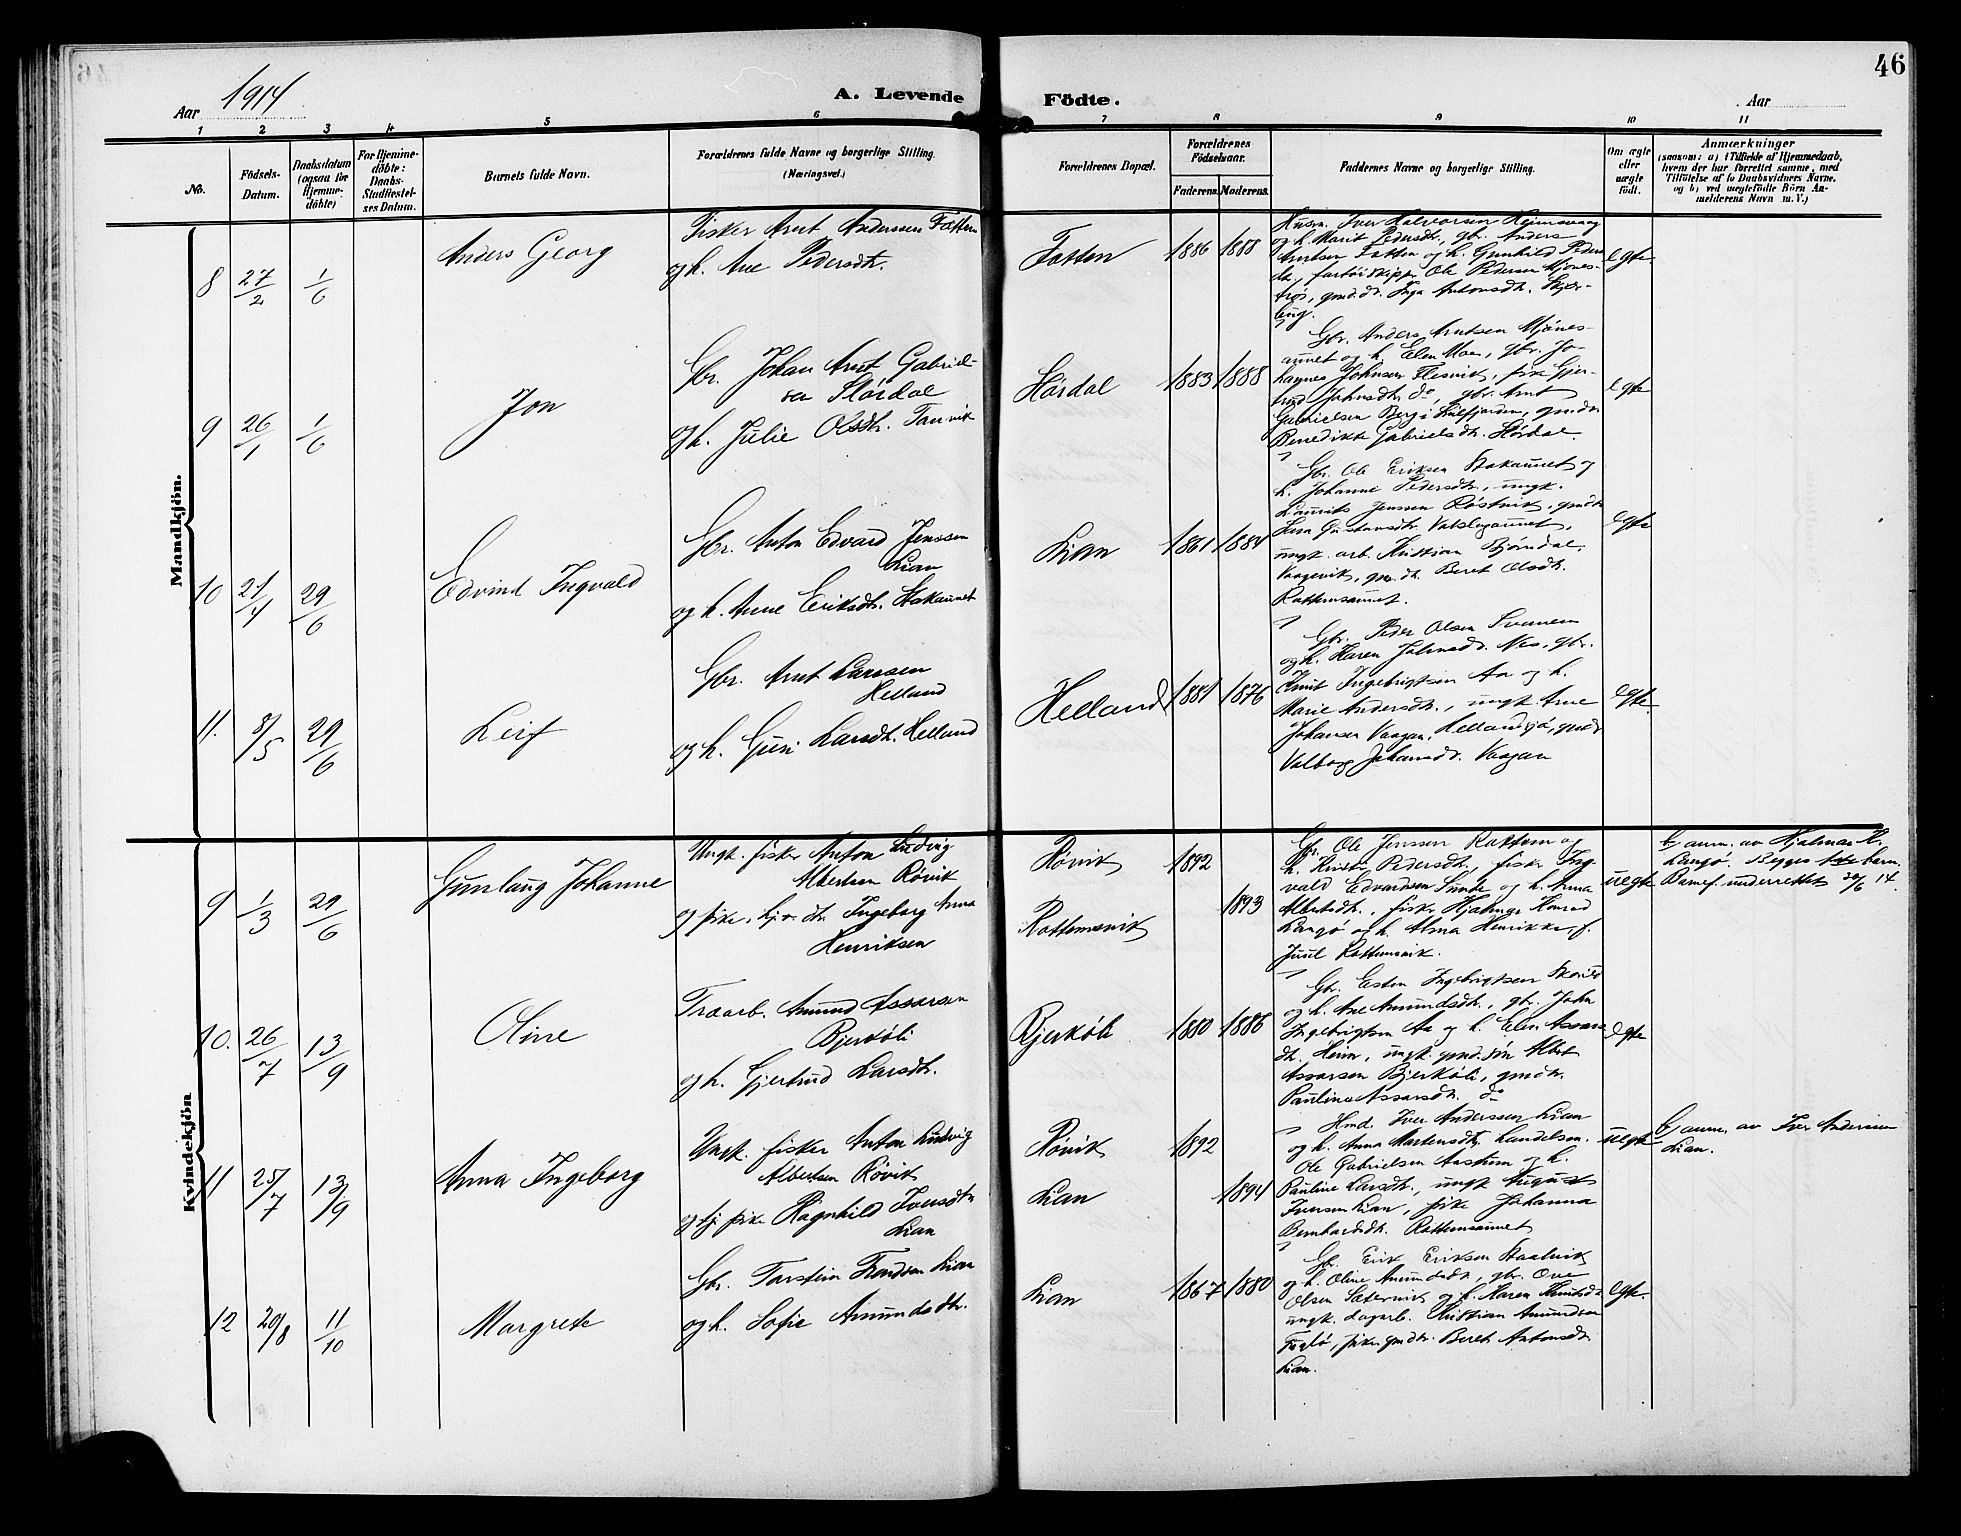 46
Aar 1914
A. Levende Födte.
Aar
1 2 3 4 5 6 7 8 9 10 11
No.
Födsels-Datum.
Daabsdatum (ogsaa for Hjemme-döbte)
For Hjemme-döbte: Daabs-Stadfæstel-ses Datum.
Barnets fulde Navn.
Forældrenes fulde Navne og borgerlige Stilling. (Næringsvei.)
Forældrenes Bopæl.
Forældrenes Födselsaar.
Faderens. Moderens.
Faddernes Navne og borgerlige Stilling.
Om ægte eller uægte födt.
Anmærkninger
(saasom: a) i Tilfælde af Hjemmedaab,
hvem der har forrettet samme, med
Tilföielse af to Daabsvidners Navne,
og b) ved uegtefödte Börn An-
melderens Navn m. V.)
Mandkjön.
8 27/2 1/6
Anders Georg
Fisker Arnt Anderssen Fætten
og h. Ane Pedersdtr.
Fætten
1886 1888
Husm. Iver Halvorsen Hejmsvaag
og h. Marit Pedersdtr., gbr. Anders
Arntsen Fætten og h. Gunhild Peders-
dtr, Ole Pedersen Mjones-
trøa, gmd.dt. Inga Antonsdtr. Skjær-
ling.
egte
9 26/1 1/6
Jon
Gbr. Johan Arnt Gabriel-
sen Slørdal
og h. Julie Olsdtr. Tanvik
Slørdal
1883 1888
Gbr. Anders Arntsen Mjønes-
aunet og h. Elen Moe, gbr. Jo-
hannes Johnsen Flesvik, pike Gjer-
trud Johnsdtr. do, gbr. Arnt
Gabrielsen Berg i , gmdtr
Benedikte Gabrielsdtr. Slørdal.
egte
10 21/4 29/6
Edvind Ingvald
Gbr. Anton Edvard Jenssen
Lian
og h. Anne Eriksdtr. Stakaunet
Lian
1861 1884
Gbr. Ole Eriksen Stakaunet og
h. Johanne Pedersdtr, ungk.
Laurits Jenssen Røstvik, gmdtr
Gustavsdtr. Vatslagaunet,
ungk. arb. Kristian Bjørndal,
Vaagevik, gmdtr. Beret Olsdtr.
Rottemsaunet.
egte
11. 8/5 29/6
Leif
Gbr. Arnt Larssen
Helland
og h. Guri Larsdtr. Helland
Helland
1881 1876
Gbr. Peder Olsen Svanem
og h. Karen Johnsd. Nes, gbr.
Knut Ingebrigtsen Aa og h.
Marie Andersdtr., ungk. Arne
Johansen Vaagan, Hellandsjø, gmdt
Valborg Johansd. Vaagan
egte
Kvindekjön
9 1/3 29/6
Gunlaug Johanne
Ungk. fisker Anton Ludvig
Albertsen Røvik
og pike, Ingeborg Anna
Henriksen
Røvik
Rottemsvik
1892
1893
Gbr. Ole Jenssen Rottem og
h. Pedersdtr., fisker Ing-
vald Edvardsen Sunde og h. Anna
Albertsdtr., fisker Hjalmar Konrad
Langø og h. Alma Henrikke, f.
Juul Rottemsvik.
uegte
anm. av Hjalmar K.
Langø. Begges barn.
underrettet 29/6 14.
10. 26/7 13/9
Oline
Træarb. Amund Assersen
Bjerkøli
og h. Gjertrud Larsdtr.
Bjerkøli
1880 1886
Gbr. Esten Ingebrigtsen Skorild
og h. Ane Amundsdtr., gbr. John
Ingebrigtsen Aa og h. Elen Assers-
dt. Heim, ungk. Albert
Assersen Bjerkøli, gmdtr.
Pauline Assersdtr. do
egte
11 25/7 13/9
Anna Ingeborg
Ungk. fisker Anton Ludvig
Albertsen Røvik
og tj. pike Ragnhild Iversdtr
Lian
Røvik
Lian
1892
1894
Hmd. Iver Anderssen Lian
og h. Anna Martensdtr, handelsm.
Ole Gabrielsen Aastum og h.
Pauline Larsdtr., ungk August
Iversen Lian, pike Johanna
Bernhardsdt. Rottemsaunet
uegte
anm. av Iver Anderssen
Lian.
12 29/8 11/10
Margrete
Gbr. Torstein Lian
og h. Sofie Amundsdtr.
Lian
1867 1880
Gbr. Erik Eriksen Staalvik
og h. Oline Amundsdt, gbr. Ove
Olsen Sætervik og h. Karen
ungk. dagarb. Kristian Amundsen
Fuglø, pike gmdtr. Beret Antonsdtr
Lian.
egte.